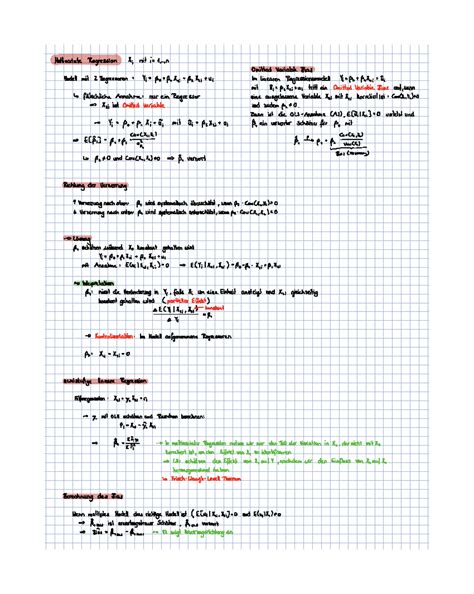 Multivariate Regression Xi mit i=1,...,n
Modell mit 2 Regressoren: Yi = β0 + β1 X1i + β2 X2i + ui
↳ fälschliche Annahme: nur ein Regressor
⇒ X2i ist Omitted Variable
→ Yi = β0 + β1 X1 + ũi mit ũi = β2 X2i + ui
↳ β2 ≠ 0 und Cov(X1,X2) ≠ 0 ⇒ β̂1 verzerrt
Omitted Variable Bias
Im linearen Regressionsmodell Yi = β0 + β1 X1i + ũi
mit ũi = β2 X2i + ui tritt ein Omitted Variable Bias auf, wenn
die ausgelassene Variable X2i mit X1i korreliert ist = Cov(X1,X2) ≠ 0
und zudem β2 ≠ 0.
Dann ist die OLS-Annahme (A2), E(ũi|X1i) = 0 verletzt und
β̂1 ein verzerrter Schätzer für β1 mit
Richtung der Verzerrung
↑ Verzerrung nach oben: β1 wird systematisch überschätzt, wenn β2 · Cov(X1,X2) > 0
↓ Verzerrung nach unten: β1 wird systematisch unterschätzt, wenn β2 · Cov(X1,X2) < 0
→ Lösung
β1 schätzen während X2 konstant gehalten wird
Yi = β0 + β1 X1i + β2 X2i + ui
mit Annahme: E(ui|X1i,X2i) = 0 ⇒ E(Yi|X1i,X2i) = β0 + β1 · X1i + β2 X2i
→ Interpretation
β1: misst die Veränderung in Yi, falls X1 um eine Einheit ansteigt und X2 gleichzeitig
konstant gehalten wird (partieller Effekt)
→ konstant
→ Kontrollvariablen: Im Modell aufgenommene Regressoren
β0: X1i = X2i = 0
zweistufige lineare Regression
→ γ1 mit OLS schätzen und Residuen berechnen:
→ In multivariater Regression nutzen wir nur den Teil der Variation in X1, der nicht mit X2
korreliert ist, um den Effekt von X1 zu identifizieren
→ Wir schätzen den Effekt von X1 auf Y, nachdem wir den Einfluss von X2 auf X1
herausgerechnet haben
↳ Frisch-Waugh-Lovell Theorem
Berechnung des Bias
Wenn multiples Modell das richtige Modell ist (E(ui|X1i,X2i) = 0 und
ist unverzerrter Schätzer, verzerrt
⇒ Bias =